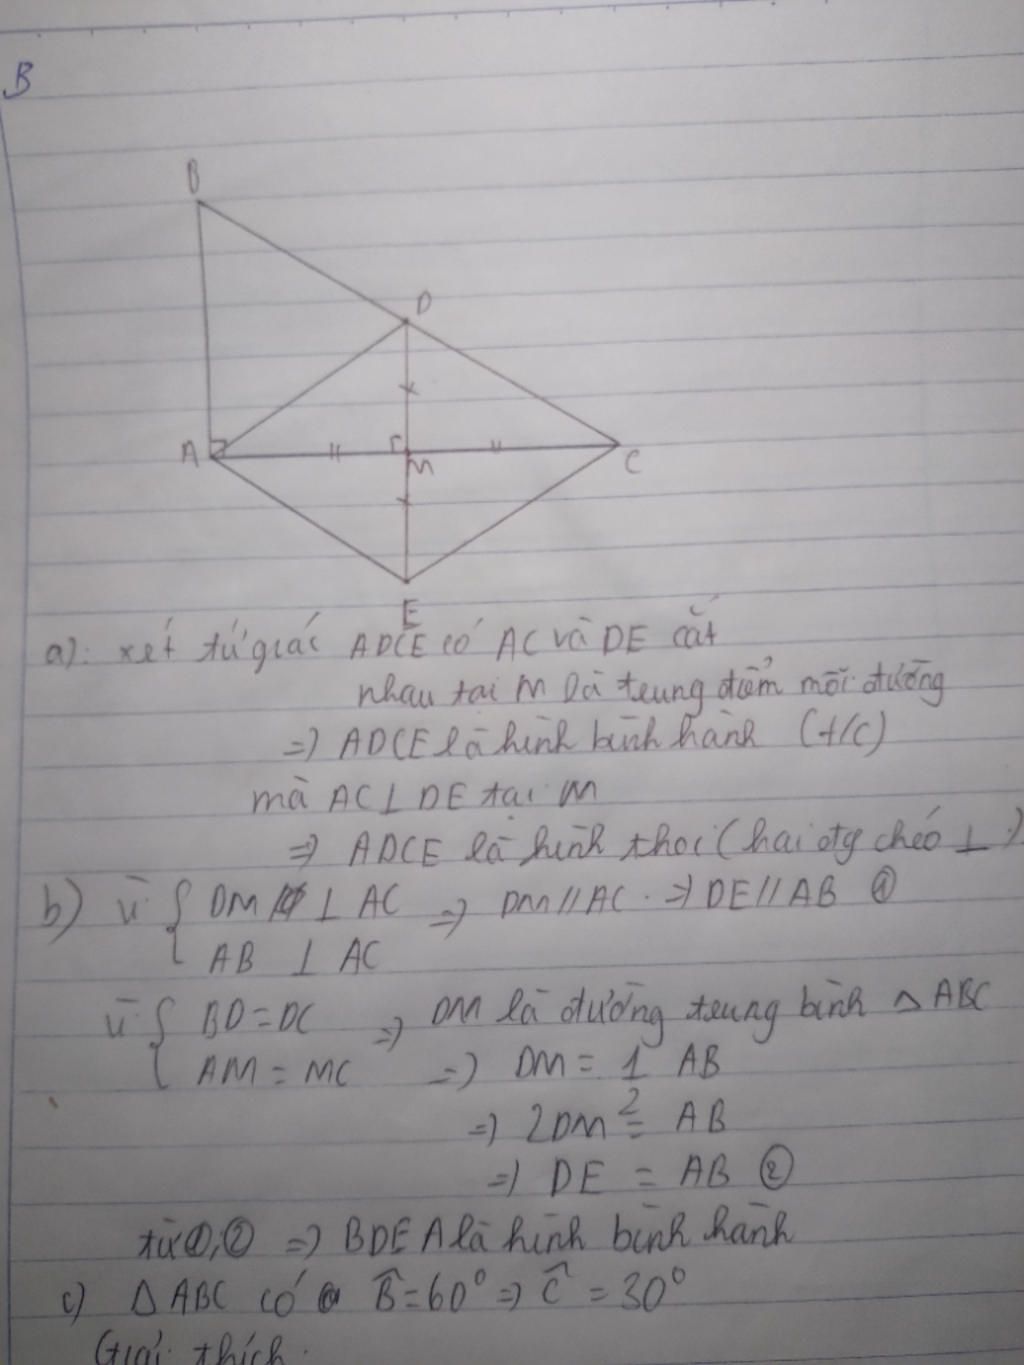 B
B
D
A
M
C
E
a): xét tứ giác ADCE có AC và DE cắt
nhau tại M là trung điểm mỗi đường
=) ADCE là hình bình hành (t/c)
mà AC ⊥ DE tại M
=) ADCE là hình thoi (hai đg chéo ⊥)
b) vì { DM ⊥ AC =) DM // AC . =) DE // AB ①
AB ⊥ AC
vì { BD = DC =) DM là đường trung bình △ ABC
AM = MC =) DM = 1/2 AB
=) 2DM = AB
=) DE = AB ②
từ ①, ② =) BDEA là hình bình hành
c) △ ABC có B̂ = 60° =) Ĉ = 30°
Giải thích.